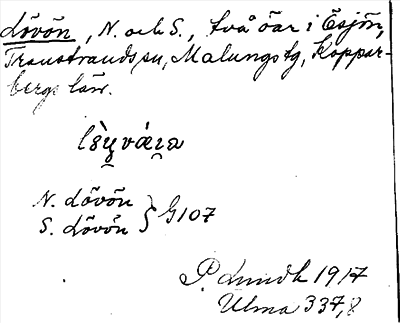 Lövön, N. och S., två öar i Ösjön,
Transtrands sn, Malungs tg, Koppar-
bergs län.
N. Lövön
S. Lövön } G107
P. Lundk 1917
Ulma 337,8